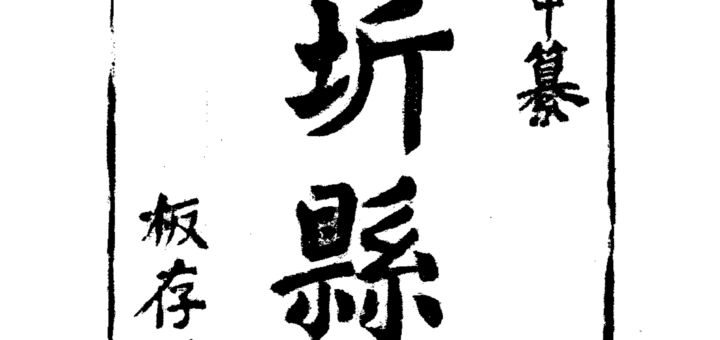 纂
圻縣
板存